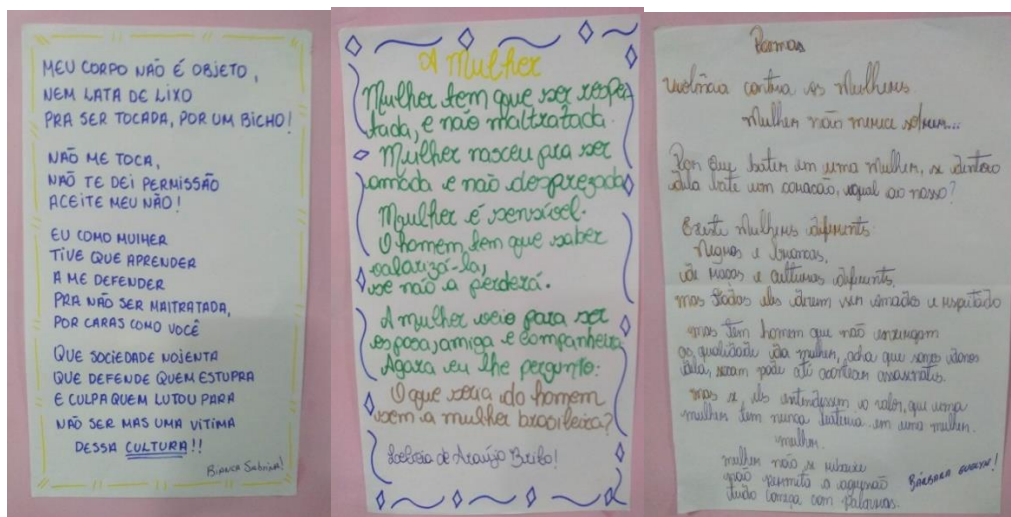 MEU CORPO NÃO É OBJETO,
NEM LATA DE LIXO
PRA SER TOCADA, POR UM BICHO!
NÃO ME TOCA,
NÃO TE DEI PERMISSÃO
ACEITE MEU NÃO!
EU COMO MULHER
TIVE QUE APRENDER
A ME DEFENDER
PRA NÃO SER MALTRATADA,
POR CARAS COMO VOCÊ
QUE SOCIEDADE NOJENTA
QUE DEFENDE QUEM ESTUPRA
E CULPA QUEM LUTOU PARA
NÃO SER MAS UMA VÍTIMA
DESSA CULTURA!!
Bianca Sabrina!
A Mulher
Mulher tem que ser respei
tada, e não maltratada.
Mulher nasceu pra ser
amada e não desprezada
Mulher é sensível.
O homem tem que saber
valorizá-la,
se não a perderá.
A mulher veio para ser
esposa, amiga e companheira
Agora eu lhe pergunto:
O que seria do homem
sem a mulher brasileira?
de Araújo Brito!
contra as Mulheres.
Mulher não merece sofrer...
Por que bater em uma mulher, se dentro
dela bate um coração, igual ao nosso?
Existe Mulheres diferents
Negras e brancas,
de raças e culturas diferents,
mas todas elas devem ser amadas e respeitado
mas tem homem que não enxergam
as qualidade da mulher, acha que somos donos
dela, pode até acontecer
mas se eles entendessem o valor, que uma
mulher tem nunca bateria em uma mulher.
mulher.
mulher não se rebaixe
não permita a agressão
tudo começa com palavras.
BÁRBARA